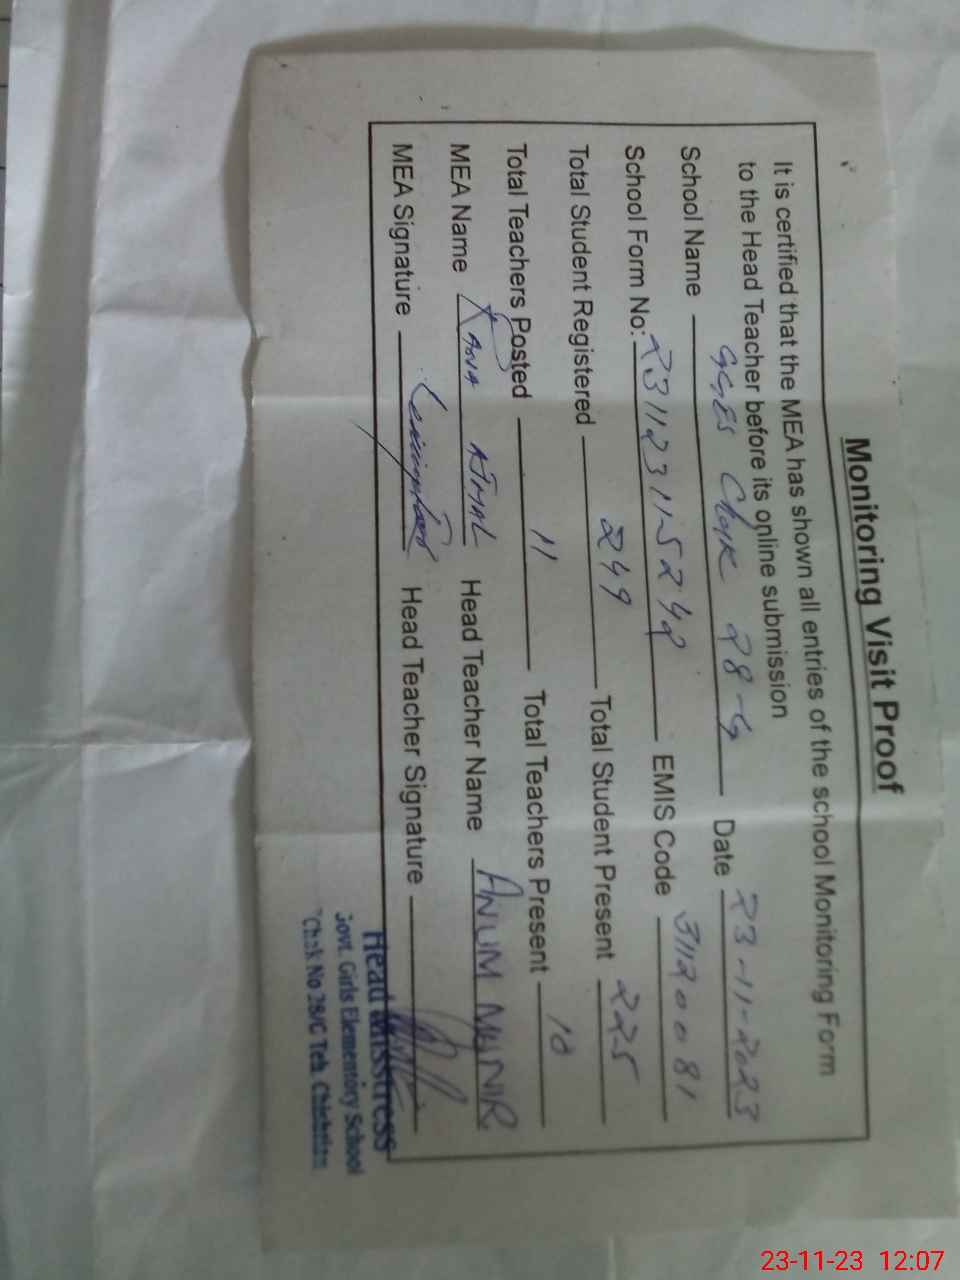 Monitoring Visit Proof
It is certified that the MEA has shown all entries of the school Monitoring Form
to the Head Teacher before its online submission
School Name GGES Chak 28-G Date 23-11-2023
School Form No: 2311231152 EMIS Code 31120081
Total Student Registered 249 Total Student Present 225
Total Teachers Posted 11 Total Teachers Present 10
MEA Name Rana Head Teacher Name ANUM MUNIR
MEA Signature Head Teacher Signature
Head Misstress
Govt. Girls Elementory School
Chak No 28/G Teh. Chishtian
23-11-23 12:07